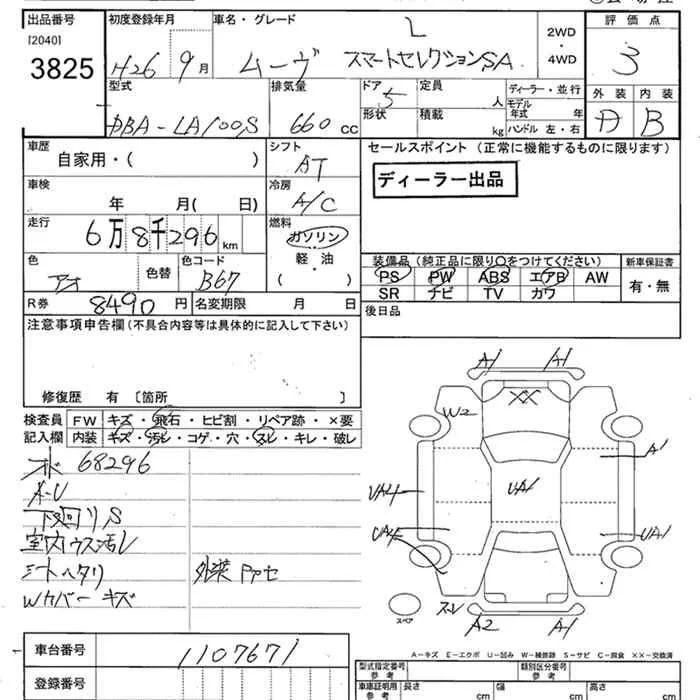 出品番号 初度登録年月 車名・グレード 評価点
[2040]
3825
H26 9月 ムーヴ L スマートセレクションSA 2WD・4WD 3
型式 排気量 ドア 定員 ディーラー・並行 外装 内装
DBA-LA100S 660cc 5 人 モデル年式 年 A B
形状 積載 kg ハンドル 左・右
車歴 シフト セールスポイント (正常に機能するものに限ります)
自家用・( ) AT
ディーラー出品
車検 冷房
年 月( 日) A/C
走行 燃料
6万8千296km ガソリン
軽・油
( )
色 色替 色コード
アオ B67
装備品(純正品に限り○をつけてください) 新車保証書
PS PW ABS エアB AW 有・無
SR ナビ TV カワ
R券 8490円 名変期限 月 日
後日品
注意事項申告欄(不具合内容等は具体的に記入して下さい)
修復歴 有 〔箇所 〕
検査員記入欄 FW キズ・飛石・ヒビ割・リペア跡・×要
内装 キズ・汚レ・コゲ・穴・スレ・キレ・破レ
68296
A-U
下回リS
室内ウス汚レ
シートヘタリ 外装
Wカバー キズ
A1 A1
XX
W2
A1
UA4 UA1
UA4 UA1
スレ
スペア
A2 A1
A-キズ E-エクボ U-凹み W-補修跡 S-サビ C-腐食 XX-交換済
車台番号 1107671
登録番号
型式指定番号 参考 類別区分番号 参考
車庫証明用 参考 長さ cm 幅 cm 高さ cm